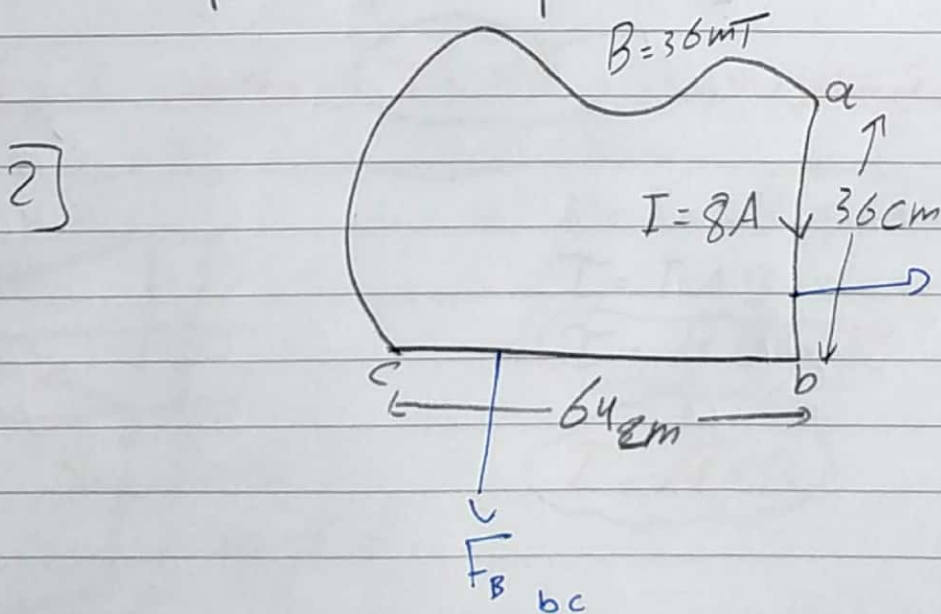 B=36mT
a
2]
I=8A
36cm
c
b
64cm
F_B bc